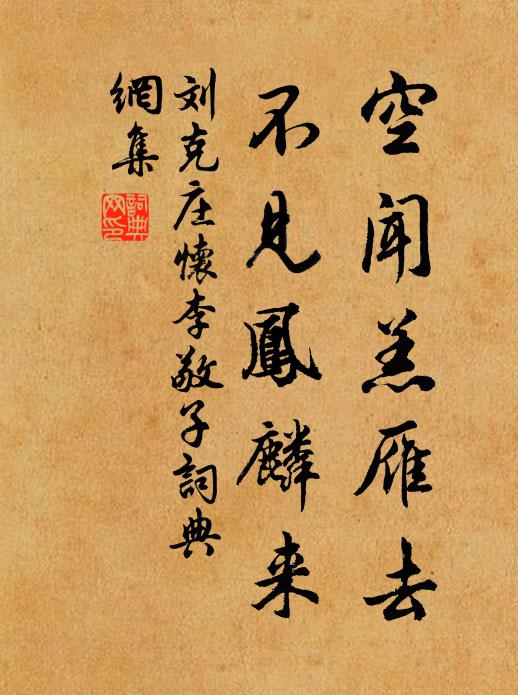 空闻羔雁去
不见鳳麟来
刘克庄懷李敬子詞典
網集
詞典网印